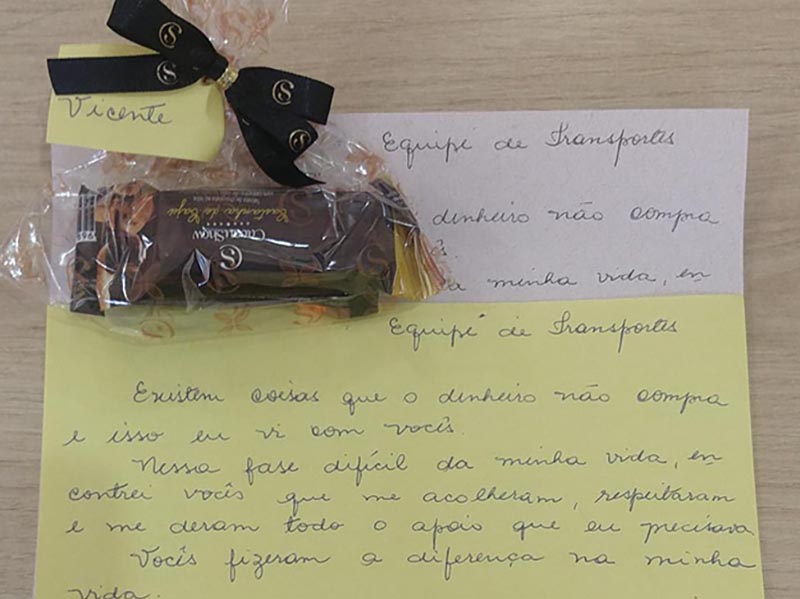 Vicente
Equipe de Transportes
dinheiro não compra
ês.
a minha vida, en
Castanha de Caju
Cacau Show
Equipe de Transportes
Existem coisas que o dinheiro não compra
e isso eu vi com vocês.
Nessa fase difícil da minha vida, en
contrei vocês que me acolheram, respeitaram
e me deram todo o apoio que eu precisava
Vocês fizeram a diferença na minha
vida.